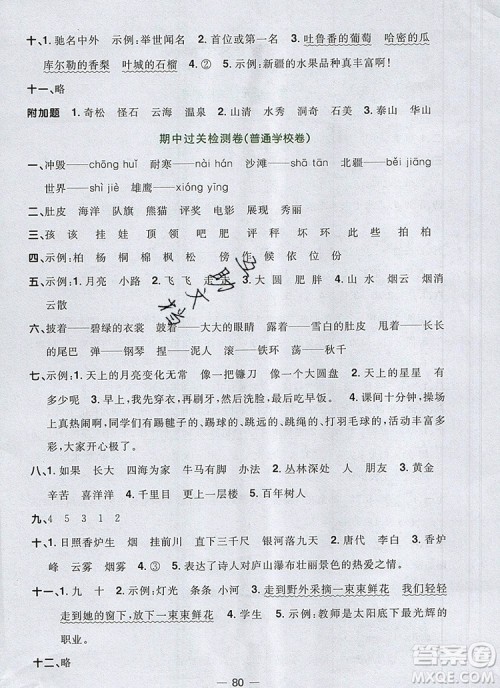 十、1. 驰名中外　示例：举世闻名　2. 首位或第一名　3. 吐鲁番的葡萄　哈密的瓜
库尔勒的香梨　叶城的石榴　4. ②　5. 示例：新疆的水果品种真丰富啊！
十一、略
附加题　1. 奇松　怪石　云海　温泉　2. 山清　水秀　洞奇　石美　3. 泰山　华山
期中过关检测卷(普通学校卷)
一、冲毁——chōng huǐ　耐寒——nài hán　沙滩——shā tān　北疆——běi jiāng
世界——shì jiè　雄鹰——xióng yīng
二、肚皮　海洋　队旗　熊猫　评奖　电影　展现　秀丽
三、孩　该　挂　娃　顶　领　吧　肥　评　秤　坏　环　此　些　拍　柏
四、示例：柏　杨　桐　棉　枫　松　傍　作　候　依　位　份
五、示例：1. 月亮　小路　2. 飞　飞　走　走　3. 大　圆　肥　胖　4. 山　水　烟云　烟消
云散
六、披着——碧绿的衣裳　鼓着——大大的眼睛　露着——雪白的肚皮　甩着——长长
的尾巴　弹——钢琴　捏——泥人　滚——铁环　荡——秋千
七、示例：1. 天上的月亮变化无常　像一把镰刀　像一个大圆盘　2. 我们的校园里
有多少花呢　3. 早上，我先穿衣，再刷牙，接着洗脸，最后吃早饭。　4. 课间十分钟，操
场上真热闹啊，同学们有的踢毽子，有的踢足球、跳绳的、打羽毛球的，活动丰富多
彩，大家非常开心！
八、1. 如果　长大　四海为家　牛马有脚　办法　2. 丛林深处　人　朋友　3. 黄金
辛苦　喜洋洋　4. 千里目　5. 百年树人
九、4　5　3　1　2
十、1. 日照香炉生　烟　挂前川　川　疑似　千尺　银河落九天　2. 唐　李白　香炉
峰　云雾　云雾　3. ③　4. 表达了诗人对庐山瀑布壮丽景色的热爱之情。
十一、1. 九　十　2. 示例：灯光　条条　小河　3. 走到野外采摘一束束鲜花　我们轻轻
走到她的窗下，放下一束束鲜花　4. 学生　5. 示例：教师是太阳底下最光辉的
职业。
十二、略
80